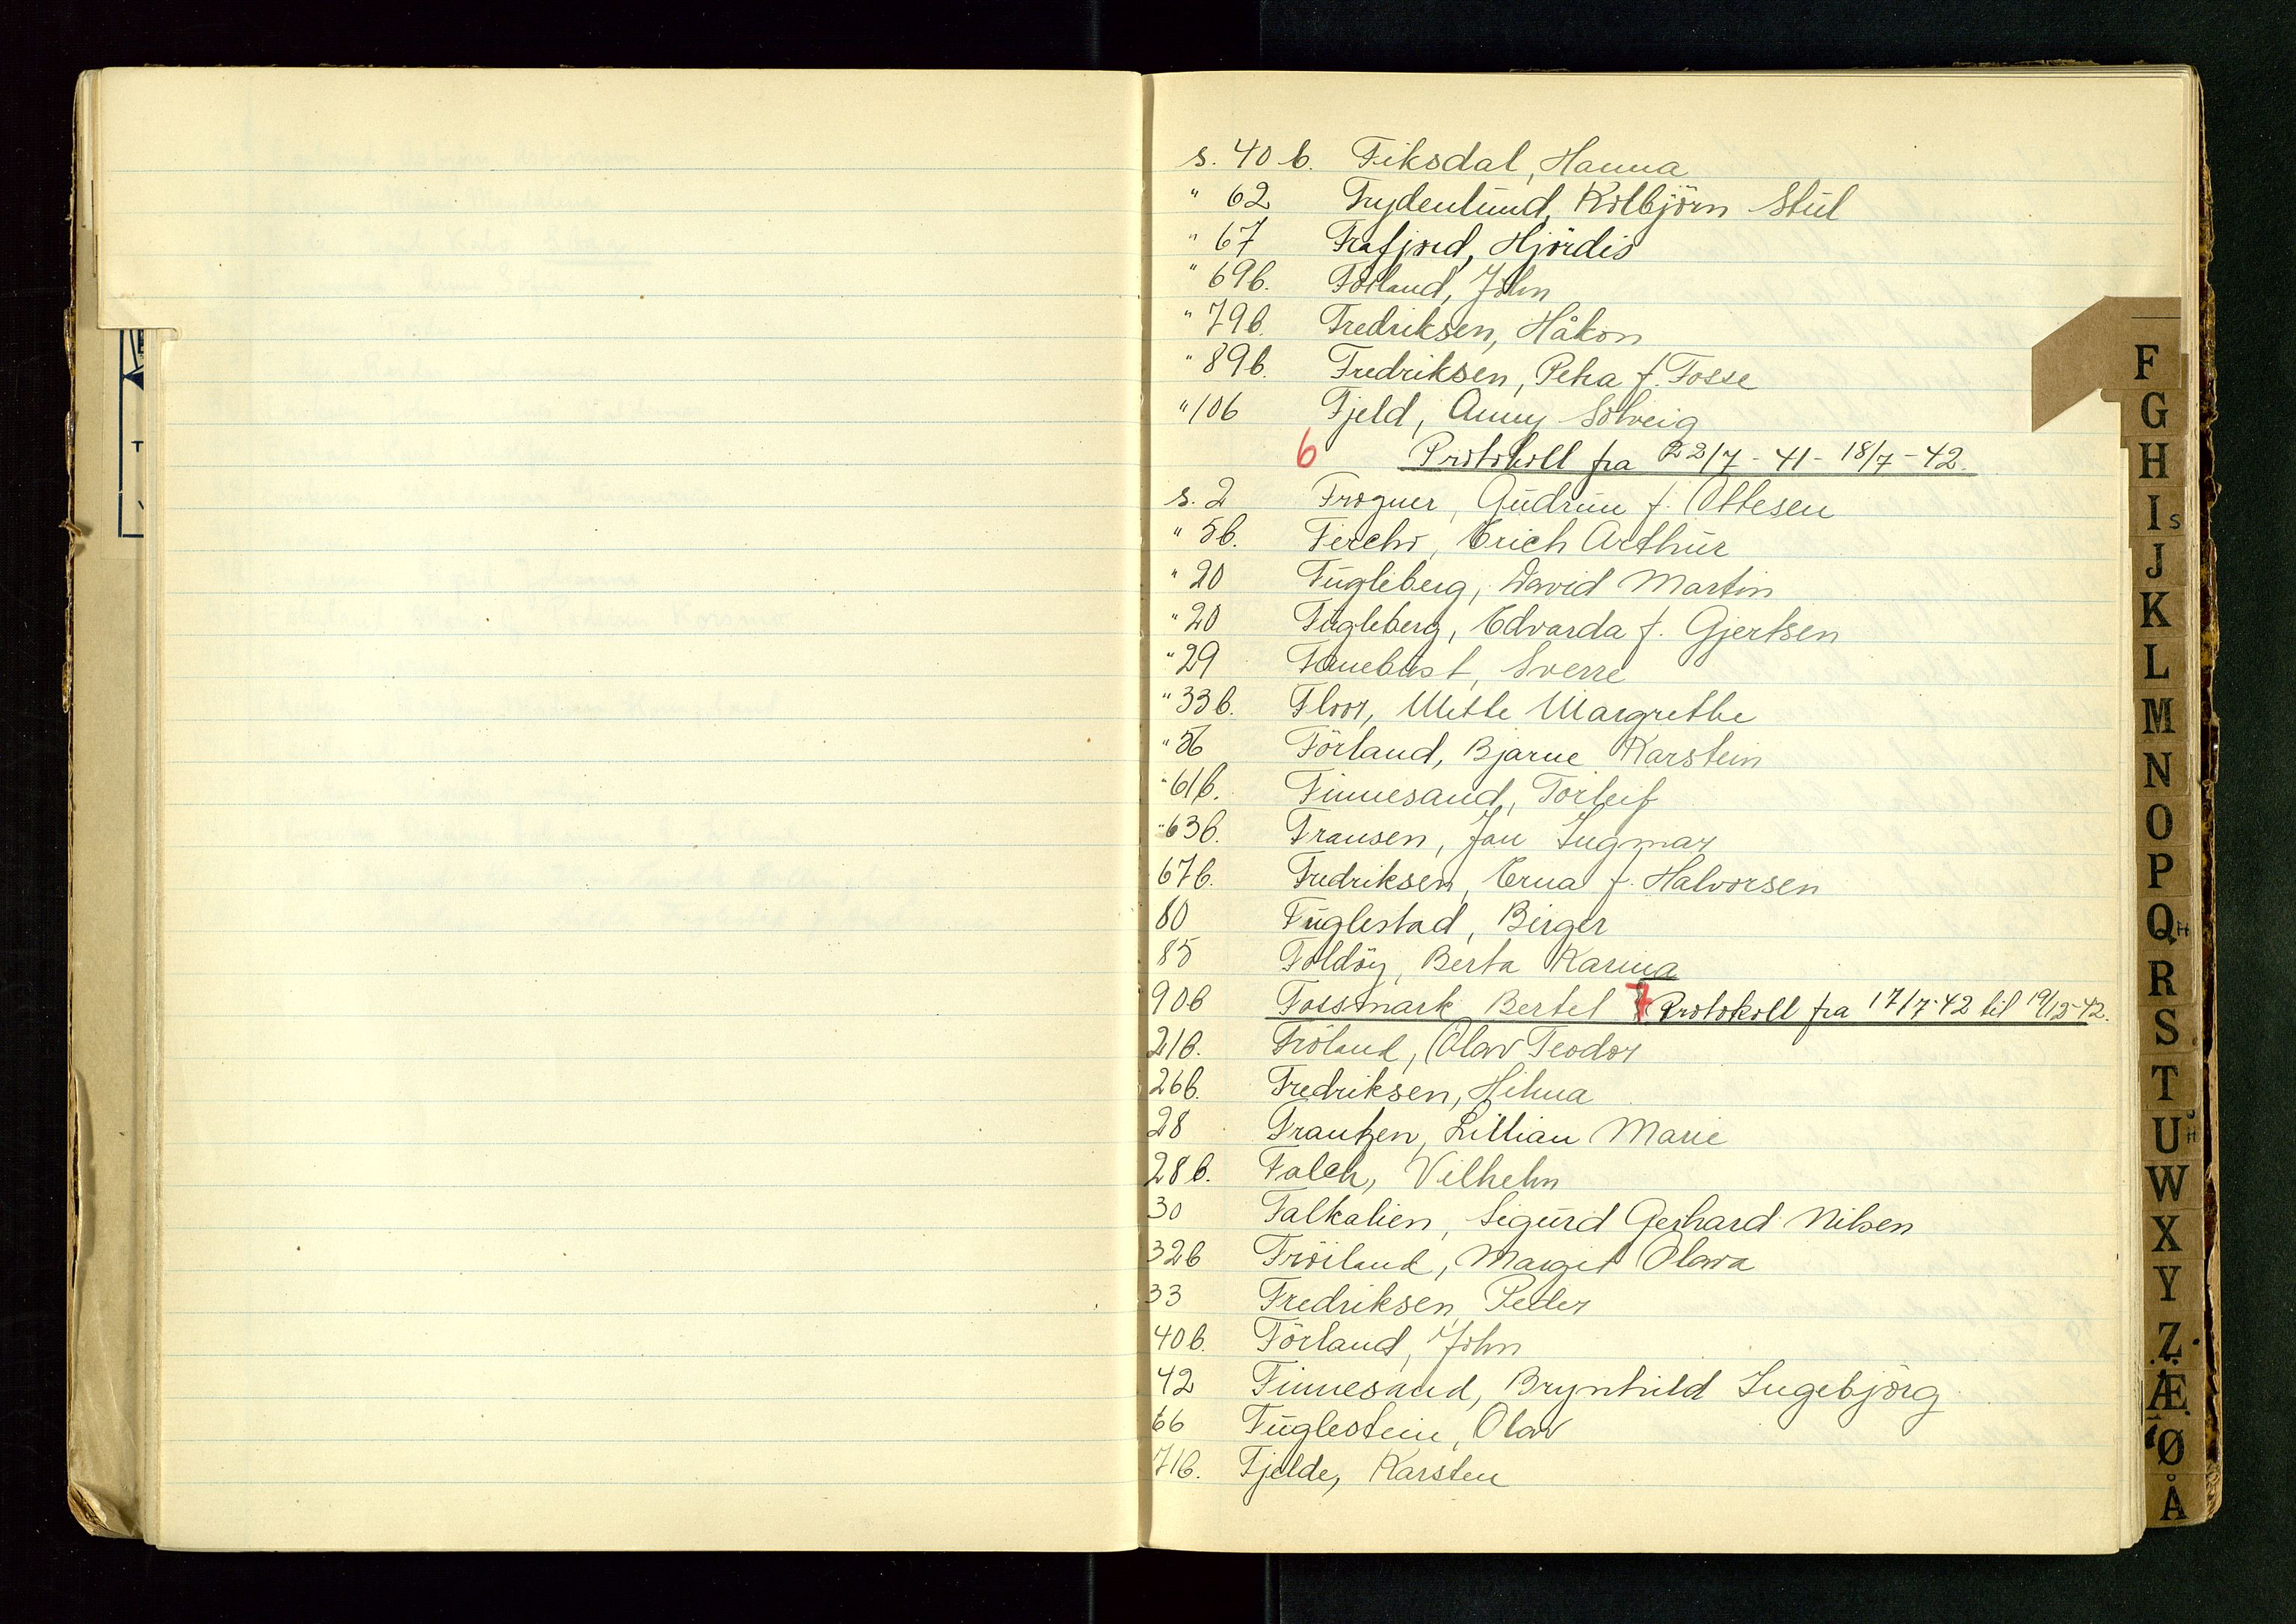 s. 40 b. Fiksdal, Hanna
" 62 Frydenlund, Kolbjörn Stül
" 67 Frafjord, Hjördis
" 69b. Förland, John
" 79b. Fredriksen, Håkon
" 89b. Fredriksen, Petra f. Fosse
" 106 Fjeld, Anny Solveig
6 Protokoll fra 22/7-41-18/7-42.
s. 2 Frogner, Gudrun f. Ottesen
" 5b. Ferchr, Erich Arthur
" 20 Fugleberg, David Martin
" 20 Fugleberg, Edvarda f. Gjertsen
" 29 Fanebust, Sverre
" 33b. Floor, Mette Margrethe
" 56 Förland, Bjarne Karstein
" 61b. Finnesand, Torleif
" 63b. Fransen, Jan Ingmar
67b. Fredriksen, Erna f. Halvorsen
80 Fuglestad, Birger
85 Foldöy, Berta Karina
90b Fossmark Bertel 7 Protokoll fra 17/7-42 til 19/12-42.
21b. Fröland, Olav Teodor
26b. Fredriksen, Hilma
28 Frantzen, Lillian Marie
28b. Falch, Vilhelm
30 Falkalien, Sigurd Gerhard Nilsen
32b Fröiland, Margit Olava
33 Fredriksen, Peder
40b. Förland, John
42 Finnesand, Brynhild Ingebjörg
66 Fuglestein, Olav
71b. Fjelde, Karsten
F
G
H
Is
J
K
L
M
N
O
P
QH
R
S
T
U
W
X
Y
Z
Æ
Ø
Å